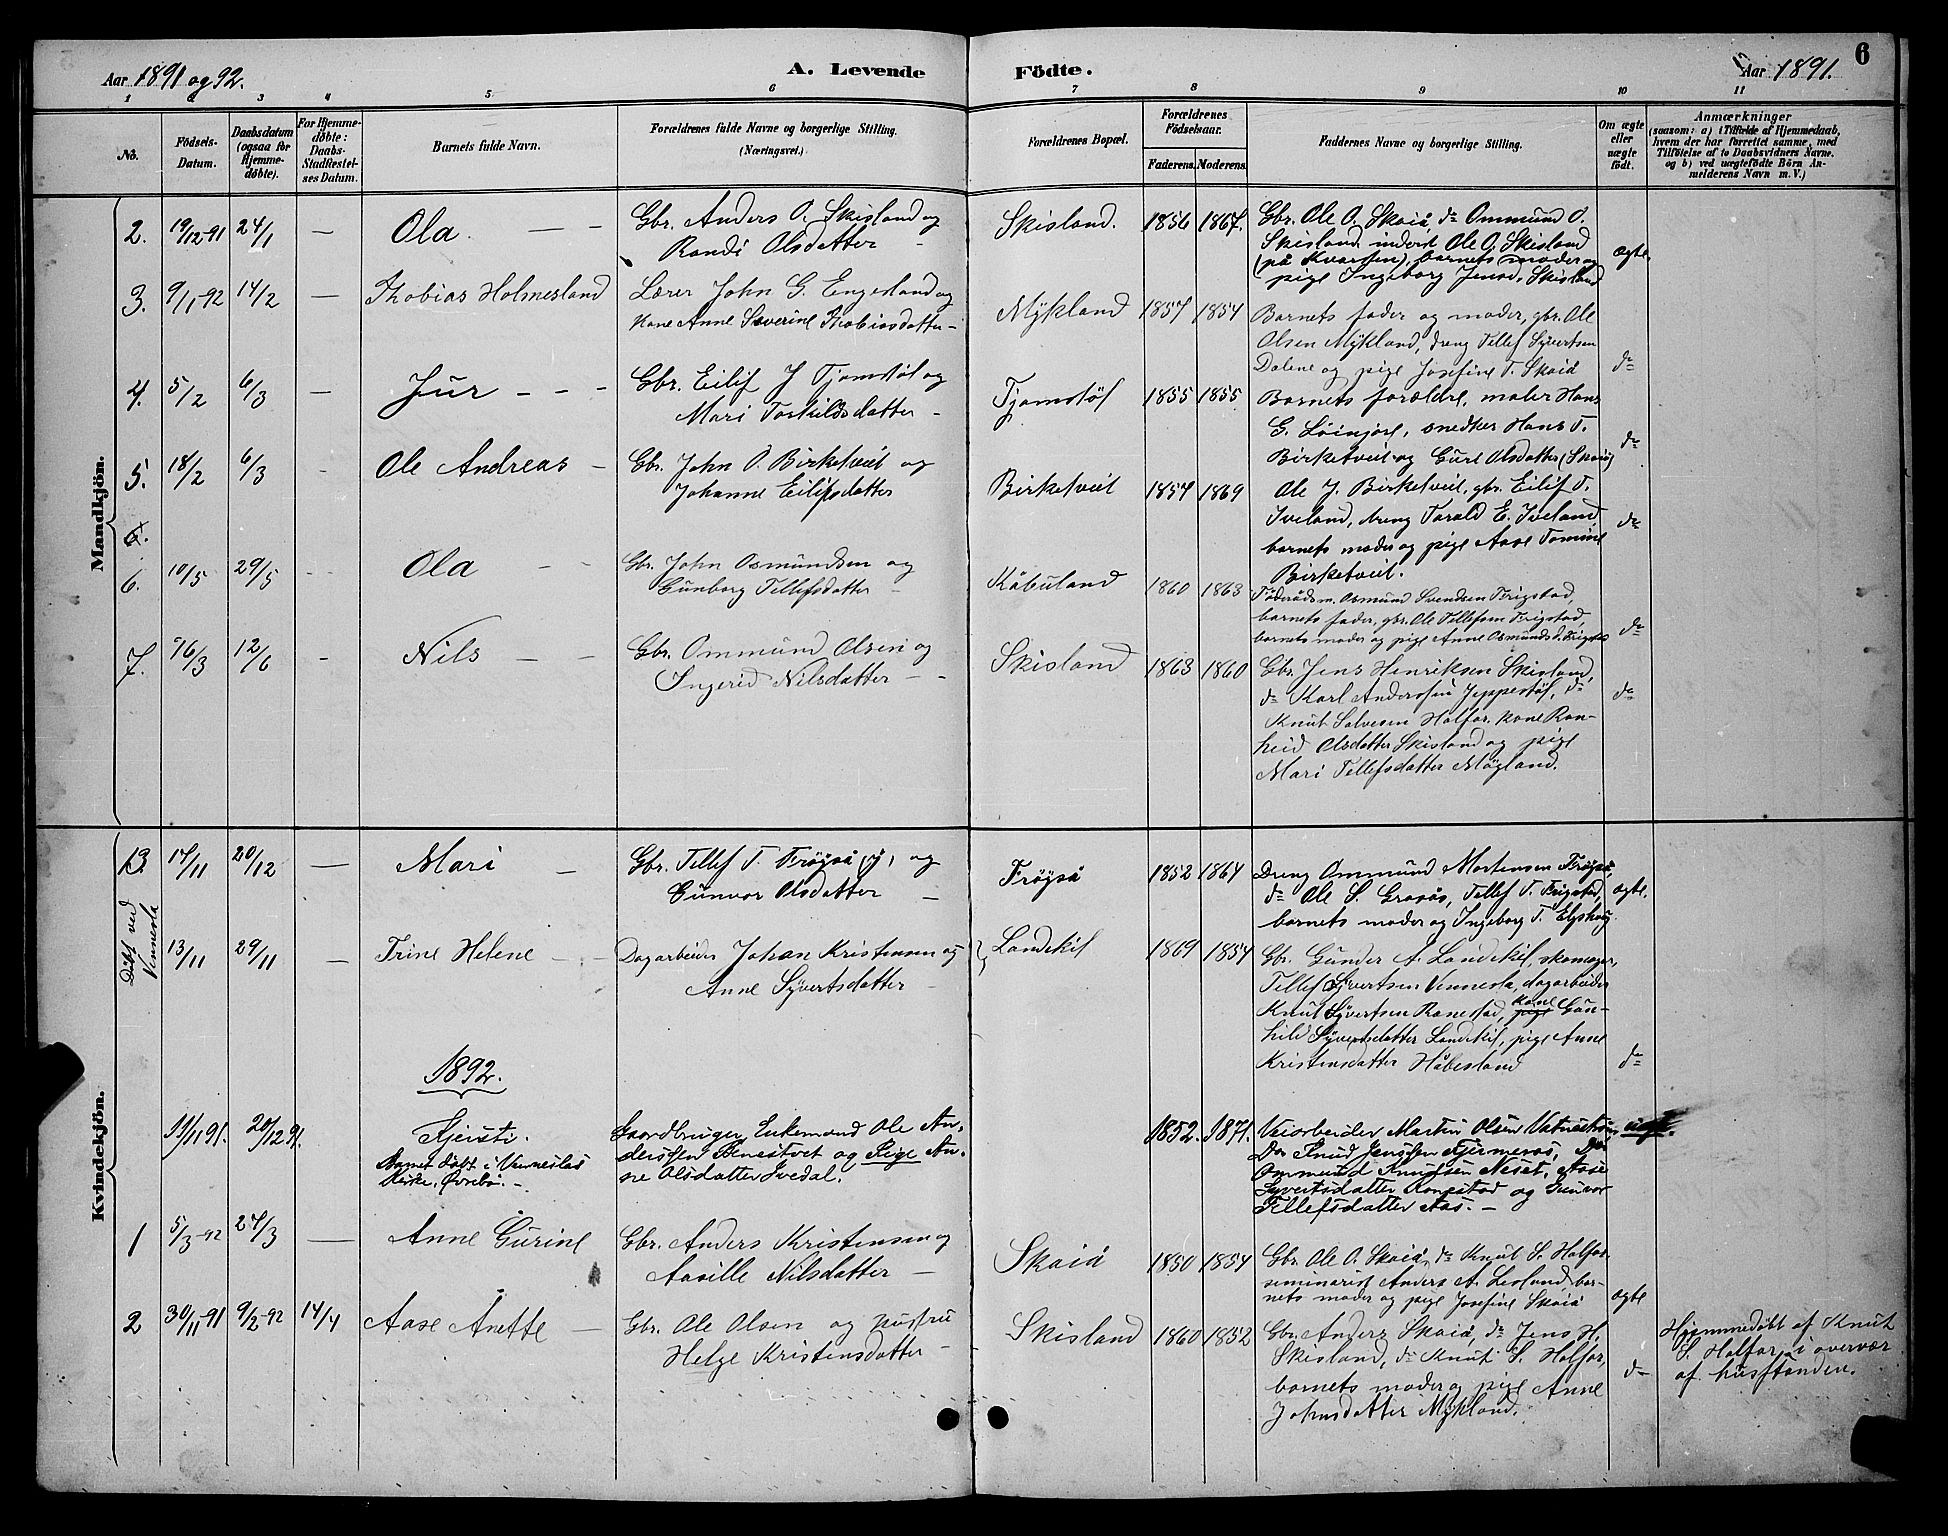 Aar 1891 og 92.
A. Levende Födte.
Aar 1891.
6
1 2 3 4 5 6 7 8 9 10 11
No.
Födsels-Datum.
Daabsdatum (ogsaa for Hjemme-døbte).
For Hjemme-døbte: Daabs-Stadfæstel-ses Datum.
Barnets fulde Navn.
Forældrenes fulde Navne og borgerlige Stilling.
(Næringsvei.)
Forældrenes Bopæl.
Forældrenes Fødselsaar.
Faderens. Moderens.
Faddernes Navne og borgerlige Stilling.
Om ægte eller uægte født.
Anmærkninger
(saasom: a) i Tilfælde af Hjemmedaab,
hvem der har forrettet samme, med
Tilföielse af to Daabsvidners Navne.
og b) ved uægtefödte Börn An-
melderens Navn m. V.)
Mandkjön.
2. 19/12-91 24/1 — Ola. — —
Gbr. Anders O. Skisland og
Randi Olsdatter —
Skisland. 1856 1867.
Gbr. Ole O. Skaiå, do Ommund O.
Skisland, inderst Ole O. Skisland
(på Kvarsten), barnets moder og
pige Ingeborg Jensd. Skisland
ægte
3. 9/1-92 14/2 — Thobias Holmesland
Lærer John G. Engesland og
kone Anne Severine Thobiasdatter —
Mykland 1857 1854
Barnets fader og moder, gbr. Ole
Olsen Mykland, dreng Tellef Syvertsen
Dalene og pige Josefine T. Skaiå
do
4. 5/2 6/3 — Jur — — —
Gbr. Eilif J Tjomstøl og
Mari Torkildsdatter —
Tjomstøl 1855 1855
Barnets forældre, maler Hans
G. Löinjore, snedker Hans T.
Birketveit og Guri Olsdatter (Skaiå)
do
5. 18/2 6/3 - Ole Andreas —
Gbr. John O. Birketveit og
Johanne Eilifsdatter
Birketveit 1857 1869
Ole J. Birketveit, gbr. Eilif T.
Iveland, dreng Tarald E. Iveland
barnets moder og pige Aase Tomine
Birketveit.
do
6.
6. 10/5 29/5 -- Ola — —
Gbr. John Osmundsen og
Gunborg Tellefsdatter —
Kåbuland 1860 1863
Föderådsm. Osmund Svendsen Frigstad,
barnets fader, gbr. Ole Tellefsen Frigstad,
barnets moder og pige Anne Osmundsd. Frigstad
do
7. 16/3 12/6 - Nils — —
Gbr. Ommund Olsen og
Ingerid Nilsdatter — -
Skisland 1863 1860
Gbr. Jens Henriksen Skisland,
do Karl Anderssen Jeppestøl, do
Knut Salvesen Halfar, kone Ran-
heid Olsdatter Skisland og pige
Mari Tellefsdatter Mögland.
do
Kvindekjön.
13. 17/11 20/12 — Mari —
Gbr. Tellef T. Frøyså og
Gunvor Olsdatter —
Frøyså 1852 1864
Dreng Ommund Mortensen Frøyså,
do Ole S. Grosås, Tellef T. Frigstad,
barnets moder og Ingeborg T. Elshaug
ægte.
Döbt ved Vennesla
13/11 29/11 — Trine Helene — —
Dagarbeider Johan Kristensen og
Anne Syvertsdatter —
Landekil 1869 1854
Gbr. Gunder A. Landekil, skomager,
Tellef Syvertsen Vennesla, dagarbeider
Knut Syvertsen Ranestad, pige kone Gun-
hild Syvertsdatter Landekil, pige Anne
Kristensdatter Håbesland
do
1892.
19/11 91. 20/12 91. Kjersti.
Barnet døbt i Venneslas
Kirke, Øvrebø. —
Gaardbruger Enkemand Ole An-
derssen Benestvet og Pige An-
ne Olsdatter Ivedal.
1852. 1871.
Veiarbeider Martin Olsen Vatnestrøm
Do Knud Jenssen Kjermerås, Do
Ommund Knudsen Neset, Aase
Syvertsdatter Ranestad og Gunvor
Tellefsdatter Aas. —
uægt.
1 5/3-92 27/3 — Anne Gurine
Gbr. Anders Kristensen og
Aasille Nilsdatter —
Skaiå 1850 1854
Gbr. Ole O. Skaiå, do Knut S. Halfar
seminarist Anders A. Lesland, bar-
nets moder og pige Josefine Skaiå
ægte
2 30/11-91 9/2-92 14/4 Aase Anette —
Gbr. Ole Olsen og hustru
Helge Kristensdatter —
Skisland 1860 1852
Gbr. Anders Skaiå, do Jens H.
Skisland, do Knut S. Halfar,
barnets moder og pige Anne
Johnsdatter Mykland.
do
Hjemmedöbt af Knut
S. Halfar i overvær
af husstanden.